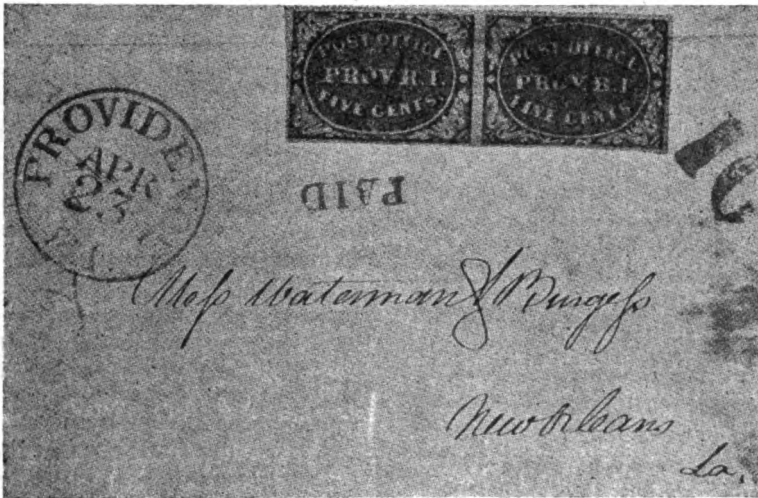 POST OFFICE
PROV. R. I.
FIVE CENTS.
POST OFFICE
PROV. R. I.
FIVE CENTS.
APR
23
PAID
10
Mess Waterman & Burgess
New Orleans
La.